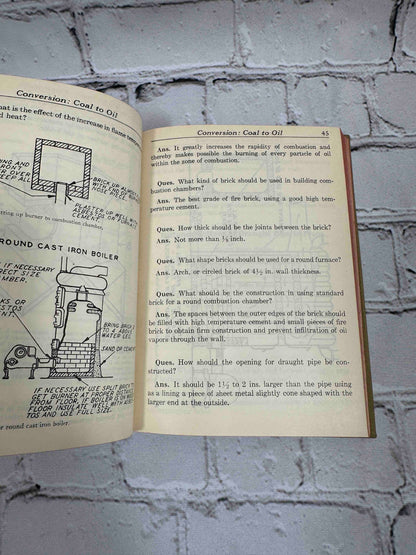 Conversion: Coal to Oil
at is the effect of the increase in flame
d heat?
ING AND
OVER
BRICK UP
PLASTER UP WELL WITH
ASBESTOS OR FURNACE
CEMENT
tting up burner to combustion chamber.
ROUND CAST IRON BOILER
IF NECESSARY
RECT SIZE
MBER.
KS OR
ESTOS
BRING BRICK
TO 4 ABOVE
WATER LEG
SAND OR CEMENT
IF NECESSARY USE SPLIT BRICK
GET BURNER AT PROPER DISTANCE
FROM FLOOR. IF BOILER IS ON
FLOOR INSULATE WELL WITH ASBES
TOS AND USE FULL SIZE.
r round cast iron boiler.
Conversion: Coal to Oil 45
Ans. It greatly increases the rapidity of combustion and
thereby makes possible the burning of every particle of oil
within the zone of combustion.
Ques. What kind of brick should be used in building com-
bustion chambers?
Ans. The best grade of fire brick, using a good high tem-
perature cement.
Ques. How thick should be the joints between the brick?
Ans. Not more than ⅛ inch.
Ques. What shape bricks should be used for a round furnace?
Ans. Arch, or circled brick of 4½ in. wall thickness.
Ques. What should be the construction in using standard
brick for a round combustion chamber?
Ans. The spaces between the outer edges of the brick should
be filled with high temperature cement and small pieces of fire
brick to obtain firm construction and prevent infiltration of oil
vapors through the wall.
Ques. How should the opening for draught pipe be con-
structed?
Ans. It should be 1½ to 2 ins. larger than the pipe using
as a lining a piece of sheet metal slightly cone shaped with the
larger end at the outside.